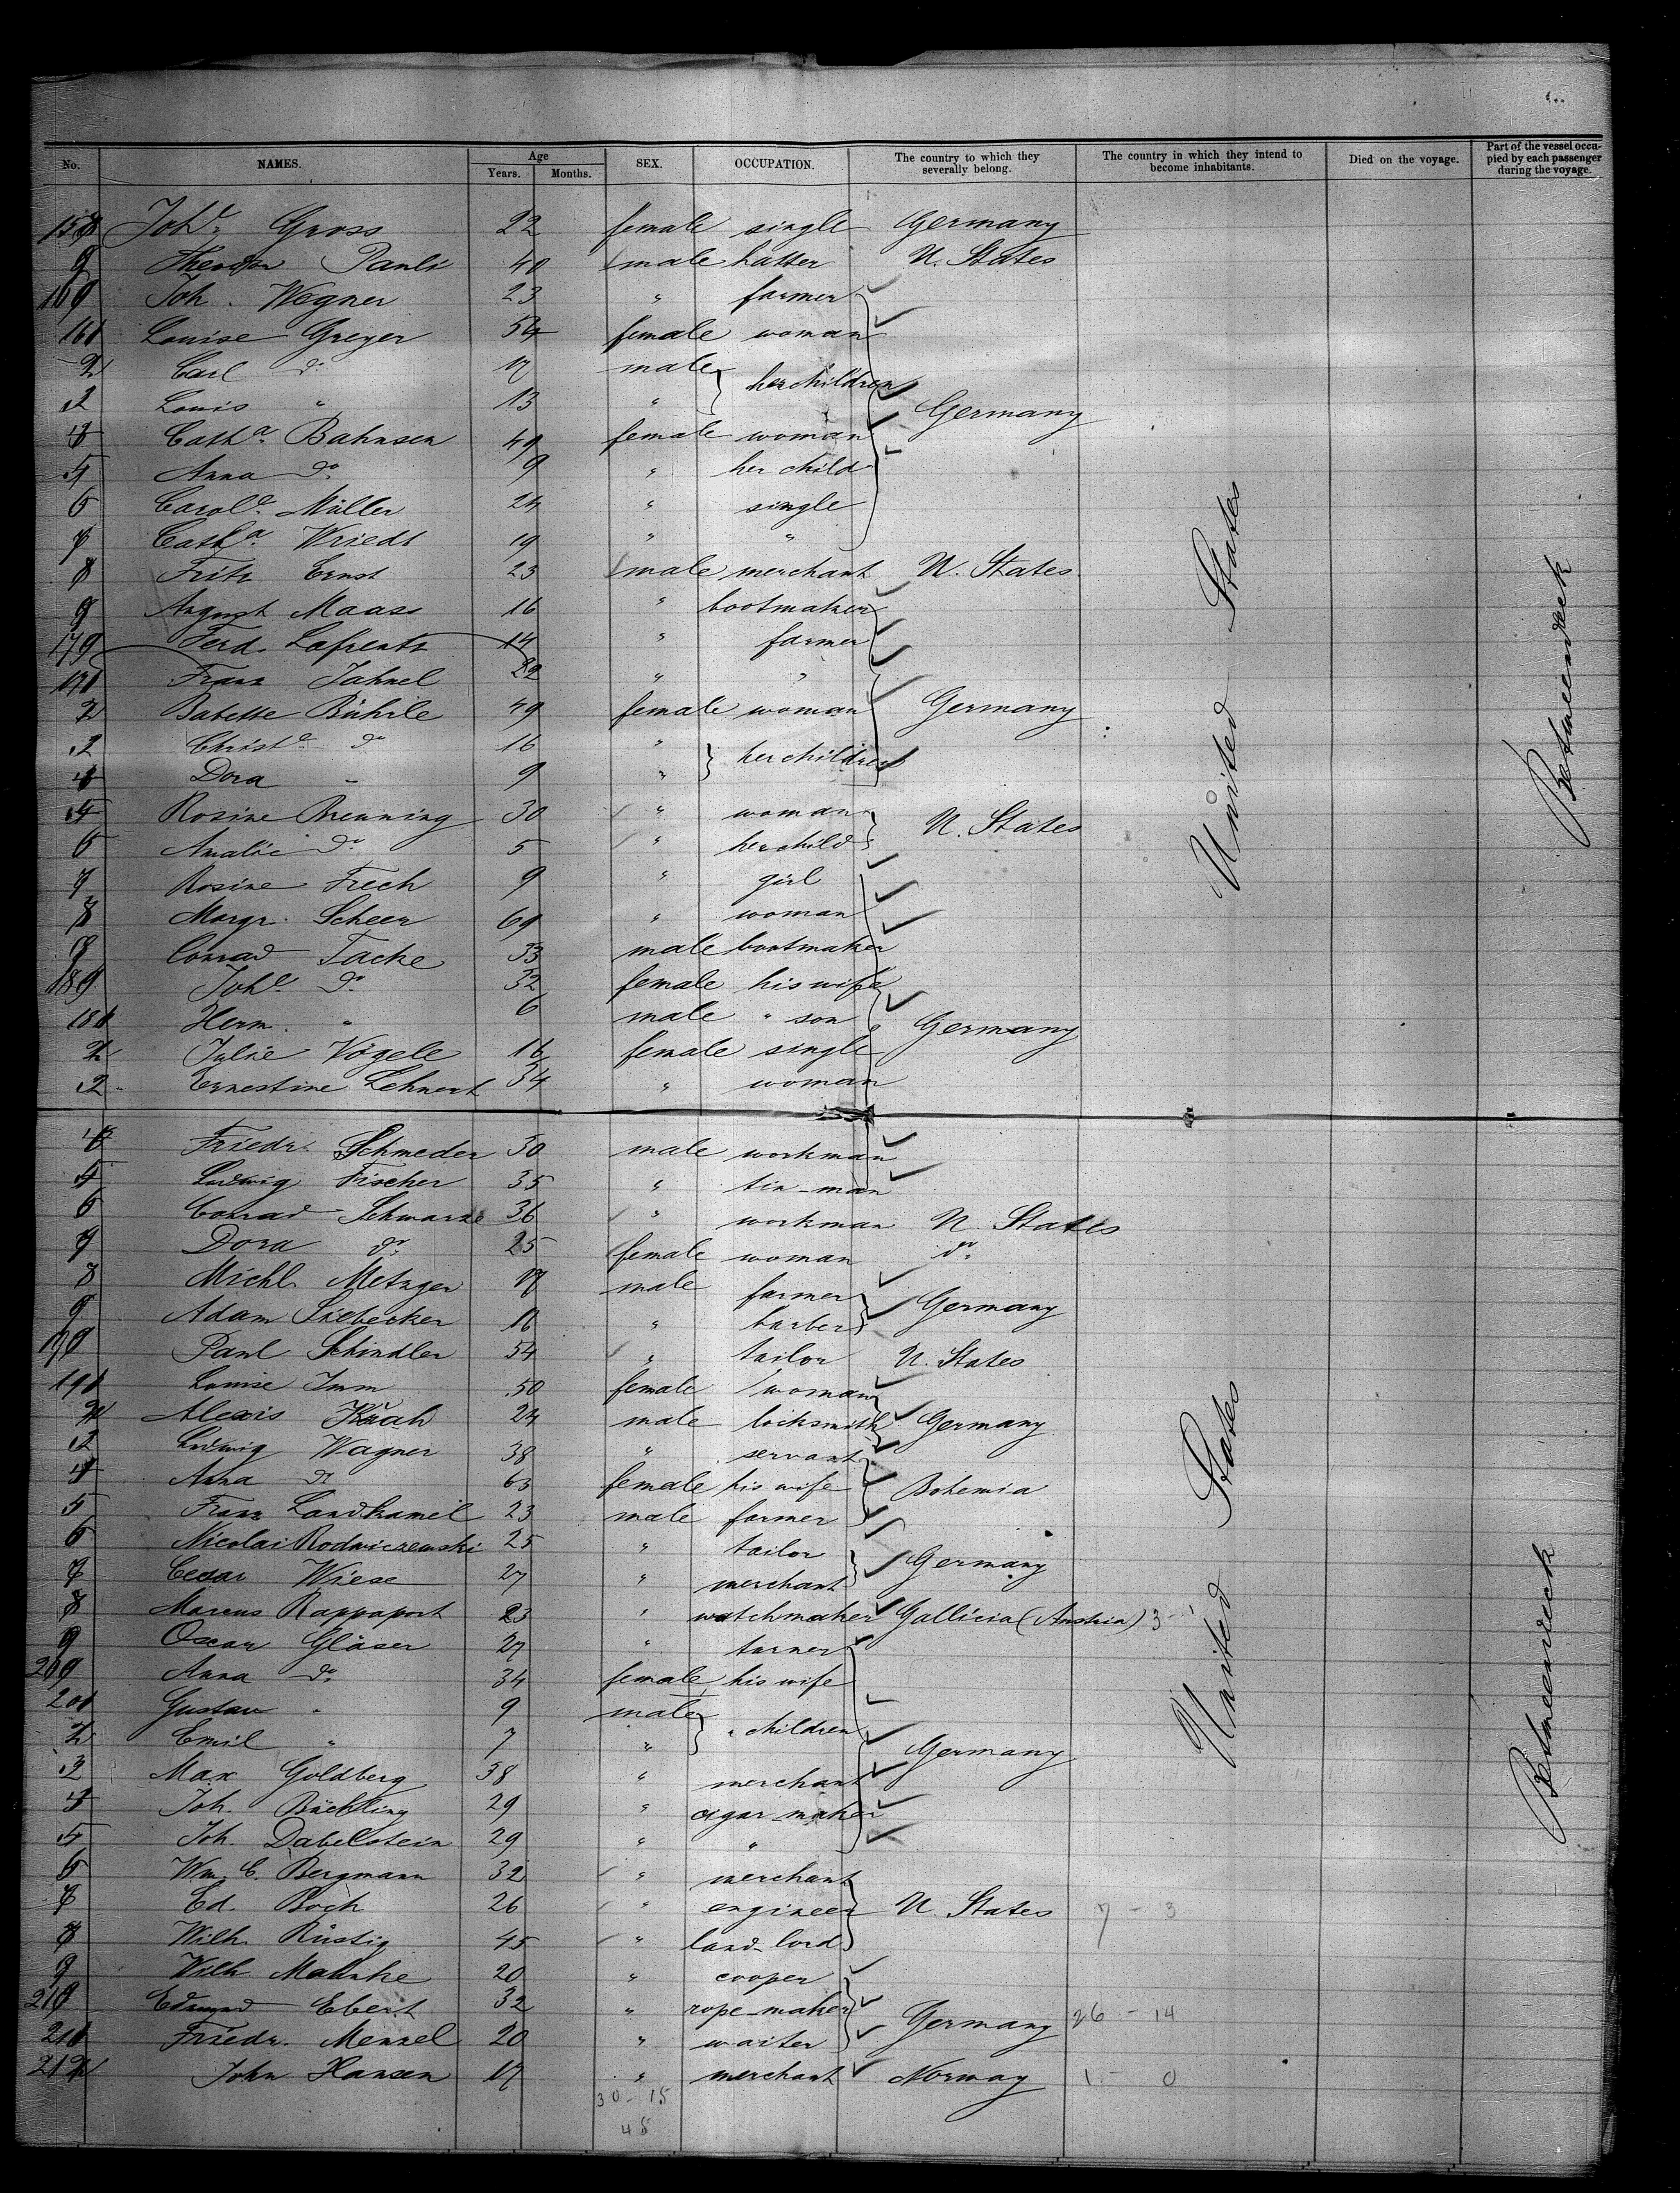 No. NAMES. Age Years. Months. SEX. OCCUPATION. The country to which they severally belong. The country in which they intend to become inhabitants. Died on the voyage. Part of the vessel occupied by each passenger during the voyage.
Joh.e Gross 22 female single Germany
9 Theodor Pauli 40 male hatter U. States
Joh. Wegner 23 " farmer
161 Louise Greyer 54 female woman
2 Carl do 17 male her children
Louis " 13 " Germany
Cath.a Bahnsen 49 female woman
Anna do 9 " her child
6 Carol.e Müller 24 " single
Cath.a Wriedt 19 " "
8 Fritz Ernst 23 male merchant U. States
9 August Maass 16 " bootmaker
Ferd. Lafrentz 14 " farmer
Franz Jahnel 22 " "
2 Babette Bührle 49 female woman Germany
Christ.e do 16 " her children
Dora " 9 "
Rosine Brenning 30 " woman U. States
6 Amalie do 5 " her child
7 Rosine Frech 9 " girl
8 Margr. Scheer 69 " woman
9 Conrad Tacke 33 male bootmaker
Joh.e do 32 female his wife
181 Herm. " 6 male " son Germany
2 Julie Vögele 16 female single
Ernestine Lehnert 34 " woman
Friedr. Schmeder 30 male workman
Ludwig Fischer 35 " tin-man
6 Conrad Schwarze 36 " workman U. States
Dora do 25 female woman do
8 Michl. Metzger 17 male farmer Germany
9 Adam Siebecker 16 " barber
Paul Schindler 54 " tailor U. States
191 Louise Imm 50 female woman
Alexis 24 male locksmith Germany
Ludwig Wagner 38 " servant
Anna do 63 female his wife Bohemia
5 Franz Landkamel 23 male farmer
6 Nicolai Rodwiczewski 25 " tailor Germany
Cesar Wiese 27 " merchant
8 Marcus Rappaport 23 " watchmaker Gallicia (Austria) 3
9 Oscar Gläser 27 " turner
Anna do 34 female his wife
201 Gustav " 9 male " children
2 Emil " 7 " Germany
Max Goldberg 38 " merchant
Joh. Büchting 29 " cigar-maker
5 Joh. Dabelstein 29 " "
6 Wm. C. Bergmann 32 " merchant
Ed. Boch 26 " engineer U. States 7 - 3
8 Wilh. Rüstig 45 " land-lord
9 Wilh. Mahnke 20 " cooper
Edmund Ebert 32 " rope-maker Germany 26 - 14
211 Friedr. Menzel 20 " waiter
212 John Hansen 17 " merchant Norway 1 - 0
30 - 15
45
United States
United States
Betweendeck
Betweendeck